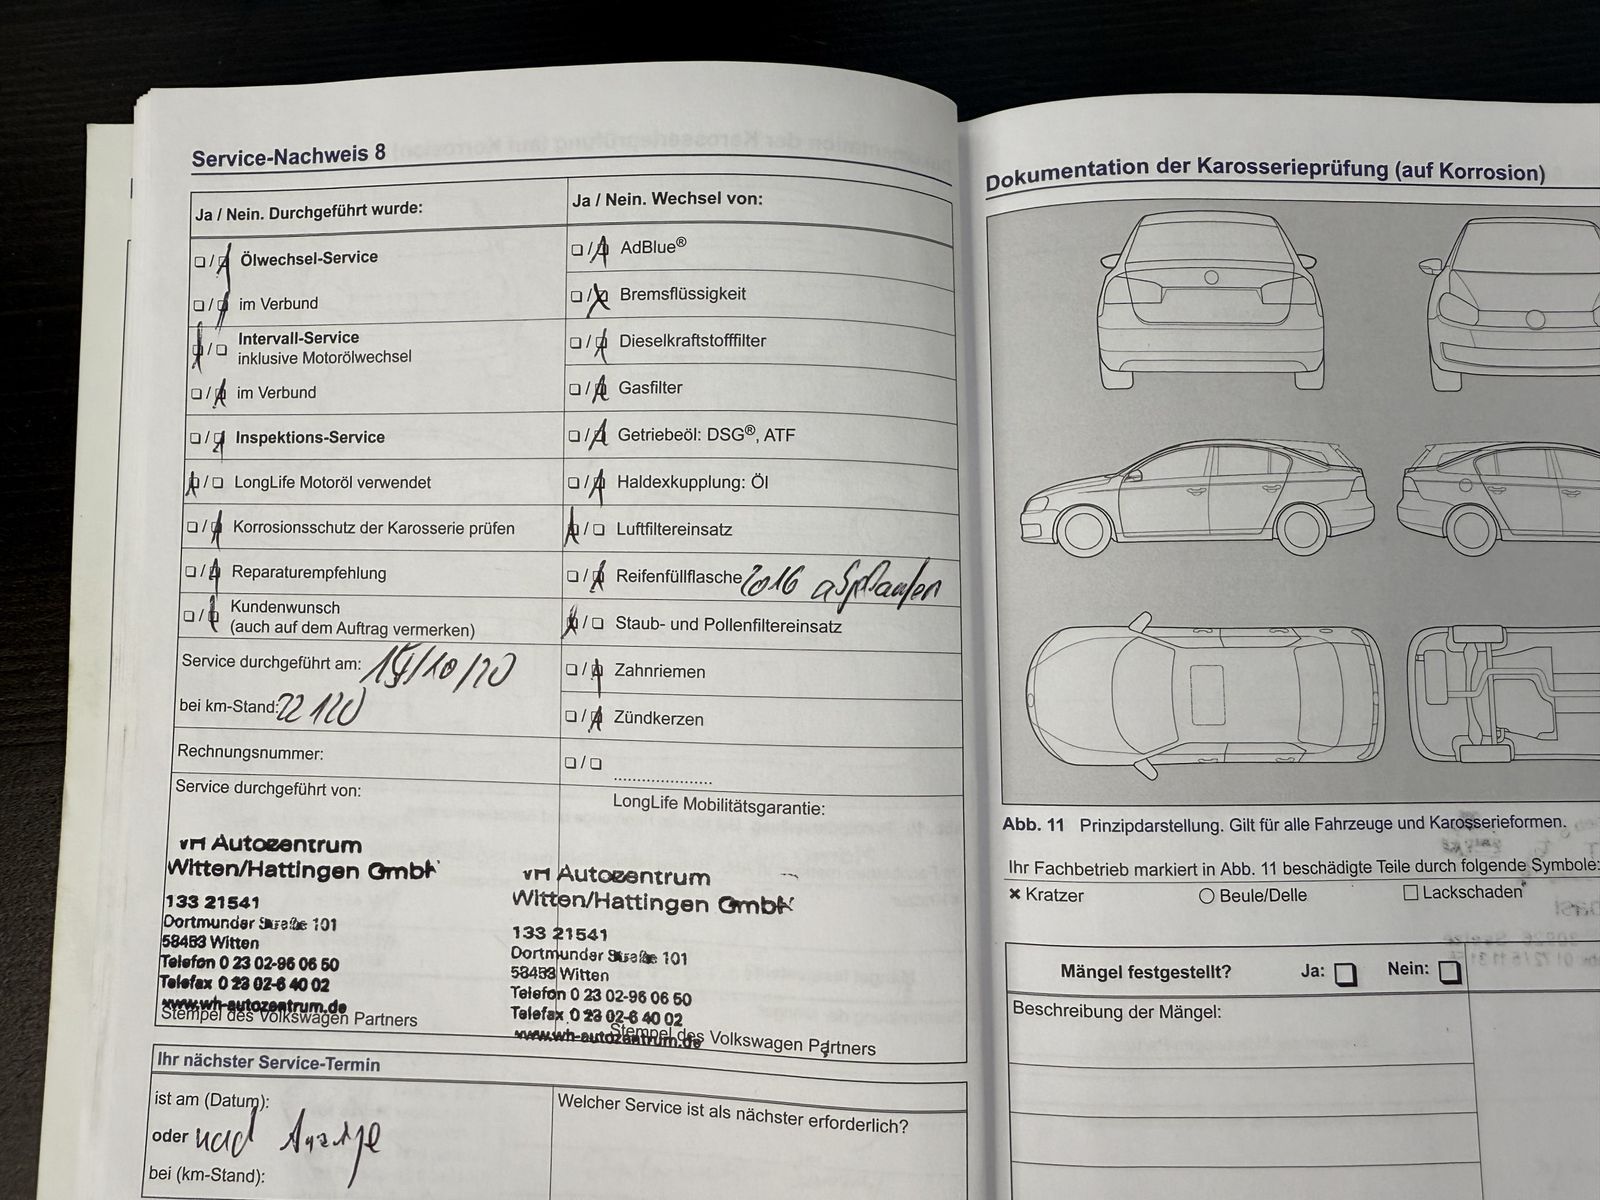 Service-Nachweis 8
Ja / Nein. Durchgeführt wurde:
Ölwechsel-Service
im Verbund
Intervall-Service
inklusive Motorölwechsel
im Verbund
Inspektions-Service
LongLife Motoröl verwendet
Korrosionsschutz der Karosserie prüfen
Reparaturempfehlung
Kundenwunsch
(auch auf dem Auftrag vermerken)
Service durchgeführt am: /10/20
bei km-Stand: 22120
Rechnungsnummer:
Service durchgeführt von:
Autozentrum
Witten/Hattingen GmbH
133 21541
Dortmunder Straße 101
58453 Witten
Telefon 0 23 02-96 06 50
Telefax 0 23 02-6 40 02
www.wh-autozentrum.de
Stempel des Volkswagen Partners
Ja / Nein. Wechsel von:
AdBlue®
Bremsflüssigkeit
Dieselkraftstofffilter
Gasfilter
Getriebeöl: DSG®, ATF
Haldexkupplung: Öl
Luftfiltereinsatz
Reifenfüllflasche 2016 abgelaufen
Staub- und Pollenfiltereinsatz
Zahnriemen
Zündkerzen
LongLife Mobilitätsgarantie:
Autozentrum
Witten/Hattingen GmbH
133 21541
Dortmunder Straße 101
58453 Witten
Telefon 0 23 02-96 06 50
Telefax 0 23 02-6 40 02
www.wh-autozentrum.de
Stempel des Volkswagen Partners
Ihr nächster Service-Termin
ist am (Datum):
oder nach Anzeige
bei (km-Stand):
Welcher Service ist als nächster erforderlich?
Dokumentation der Karosserieprüfung (auf Korrosion)
Abb. 11 Prinzipdarstellung. Gilt für alle Fahrzeuge und Karosserieformen.
Ihr Fachbetrieb markiert in Abb. 11 beschädigte Teile durch folgende Symbole:
Kratzer
Beule/Delle
Lackschaden
Mängel festgestellt? Ja: Nein:
Beschreibung der Mängel: